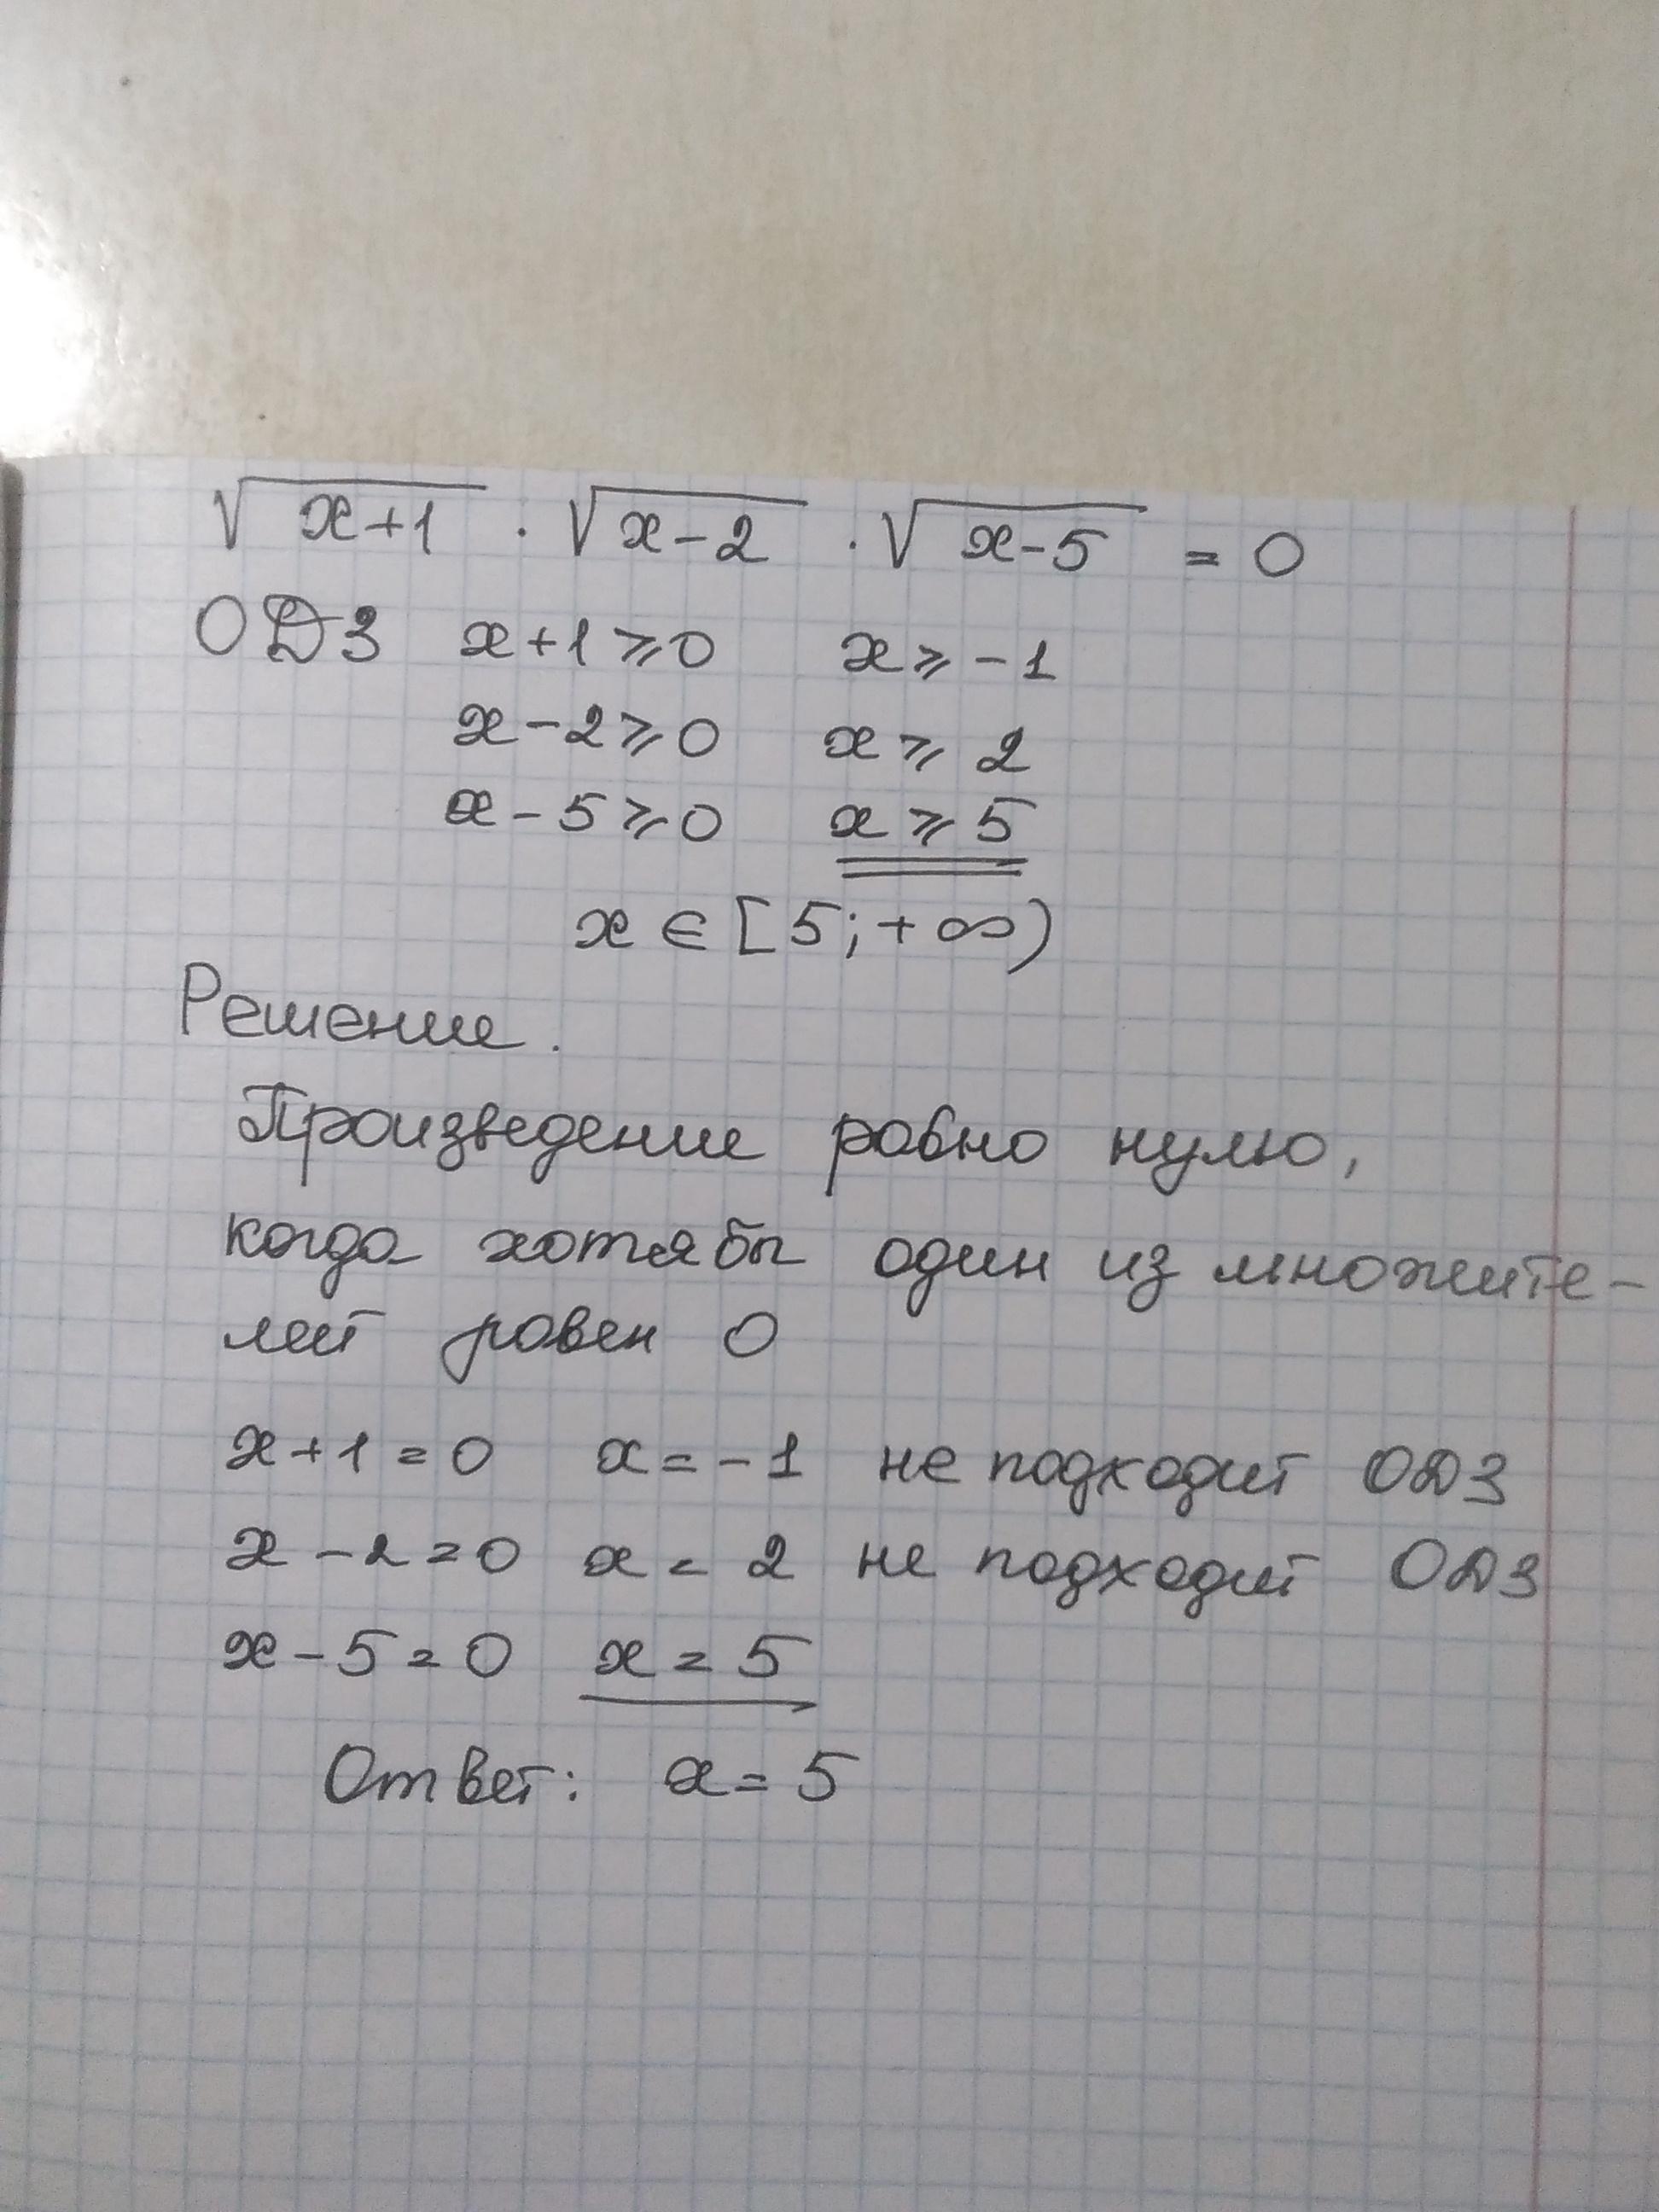 √x+1 · √x-2 · √x-5 = 0
ОДЗ x+1⩾0 x⩾-1
x-2⩾0 x⩾2
x-5⩾0 x⩾5
x∈[5;+∞)
Решение.
Произведение равно нулю,
когда хотя бы один из множите-
лей равен 0
x+1=0 x=-1 не подходит ОДЗ
x-2=0 x=2 не подходит ОДЗ
x-5=0 x=5
Ответ: x=5